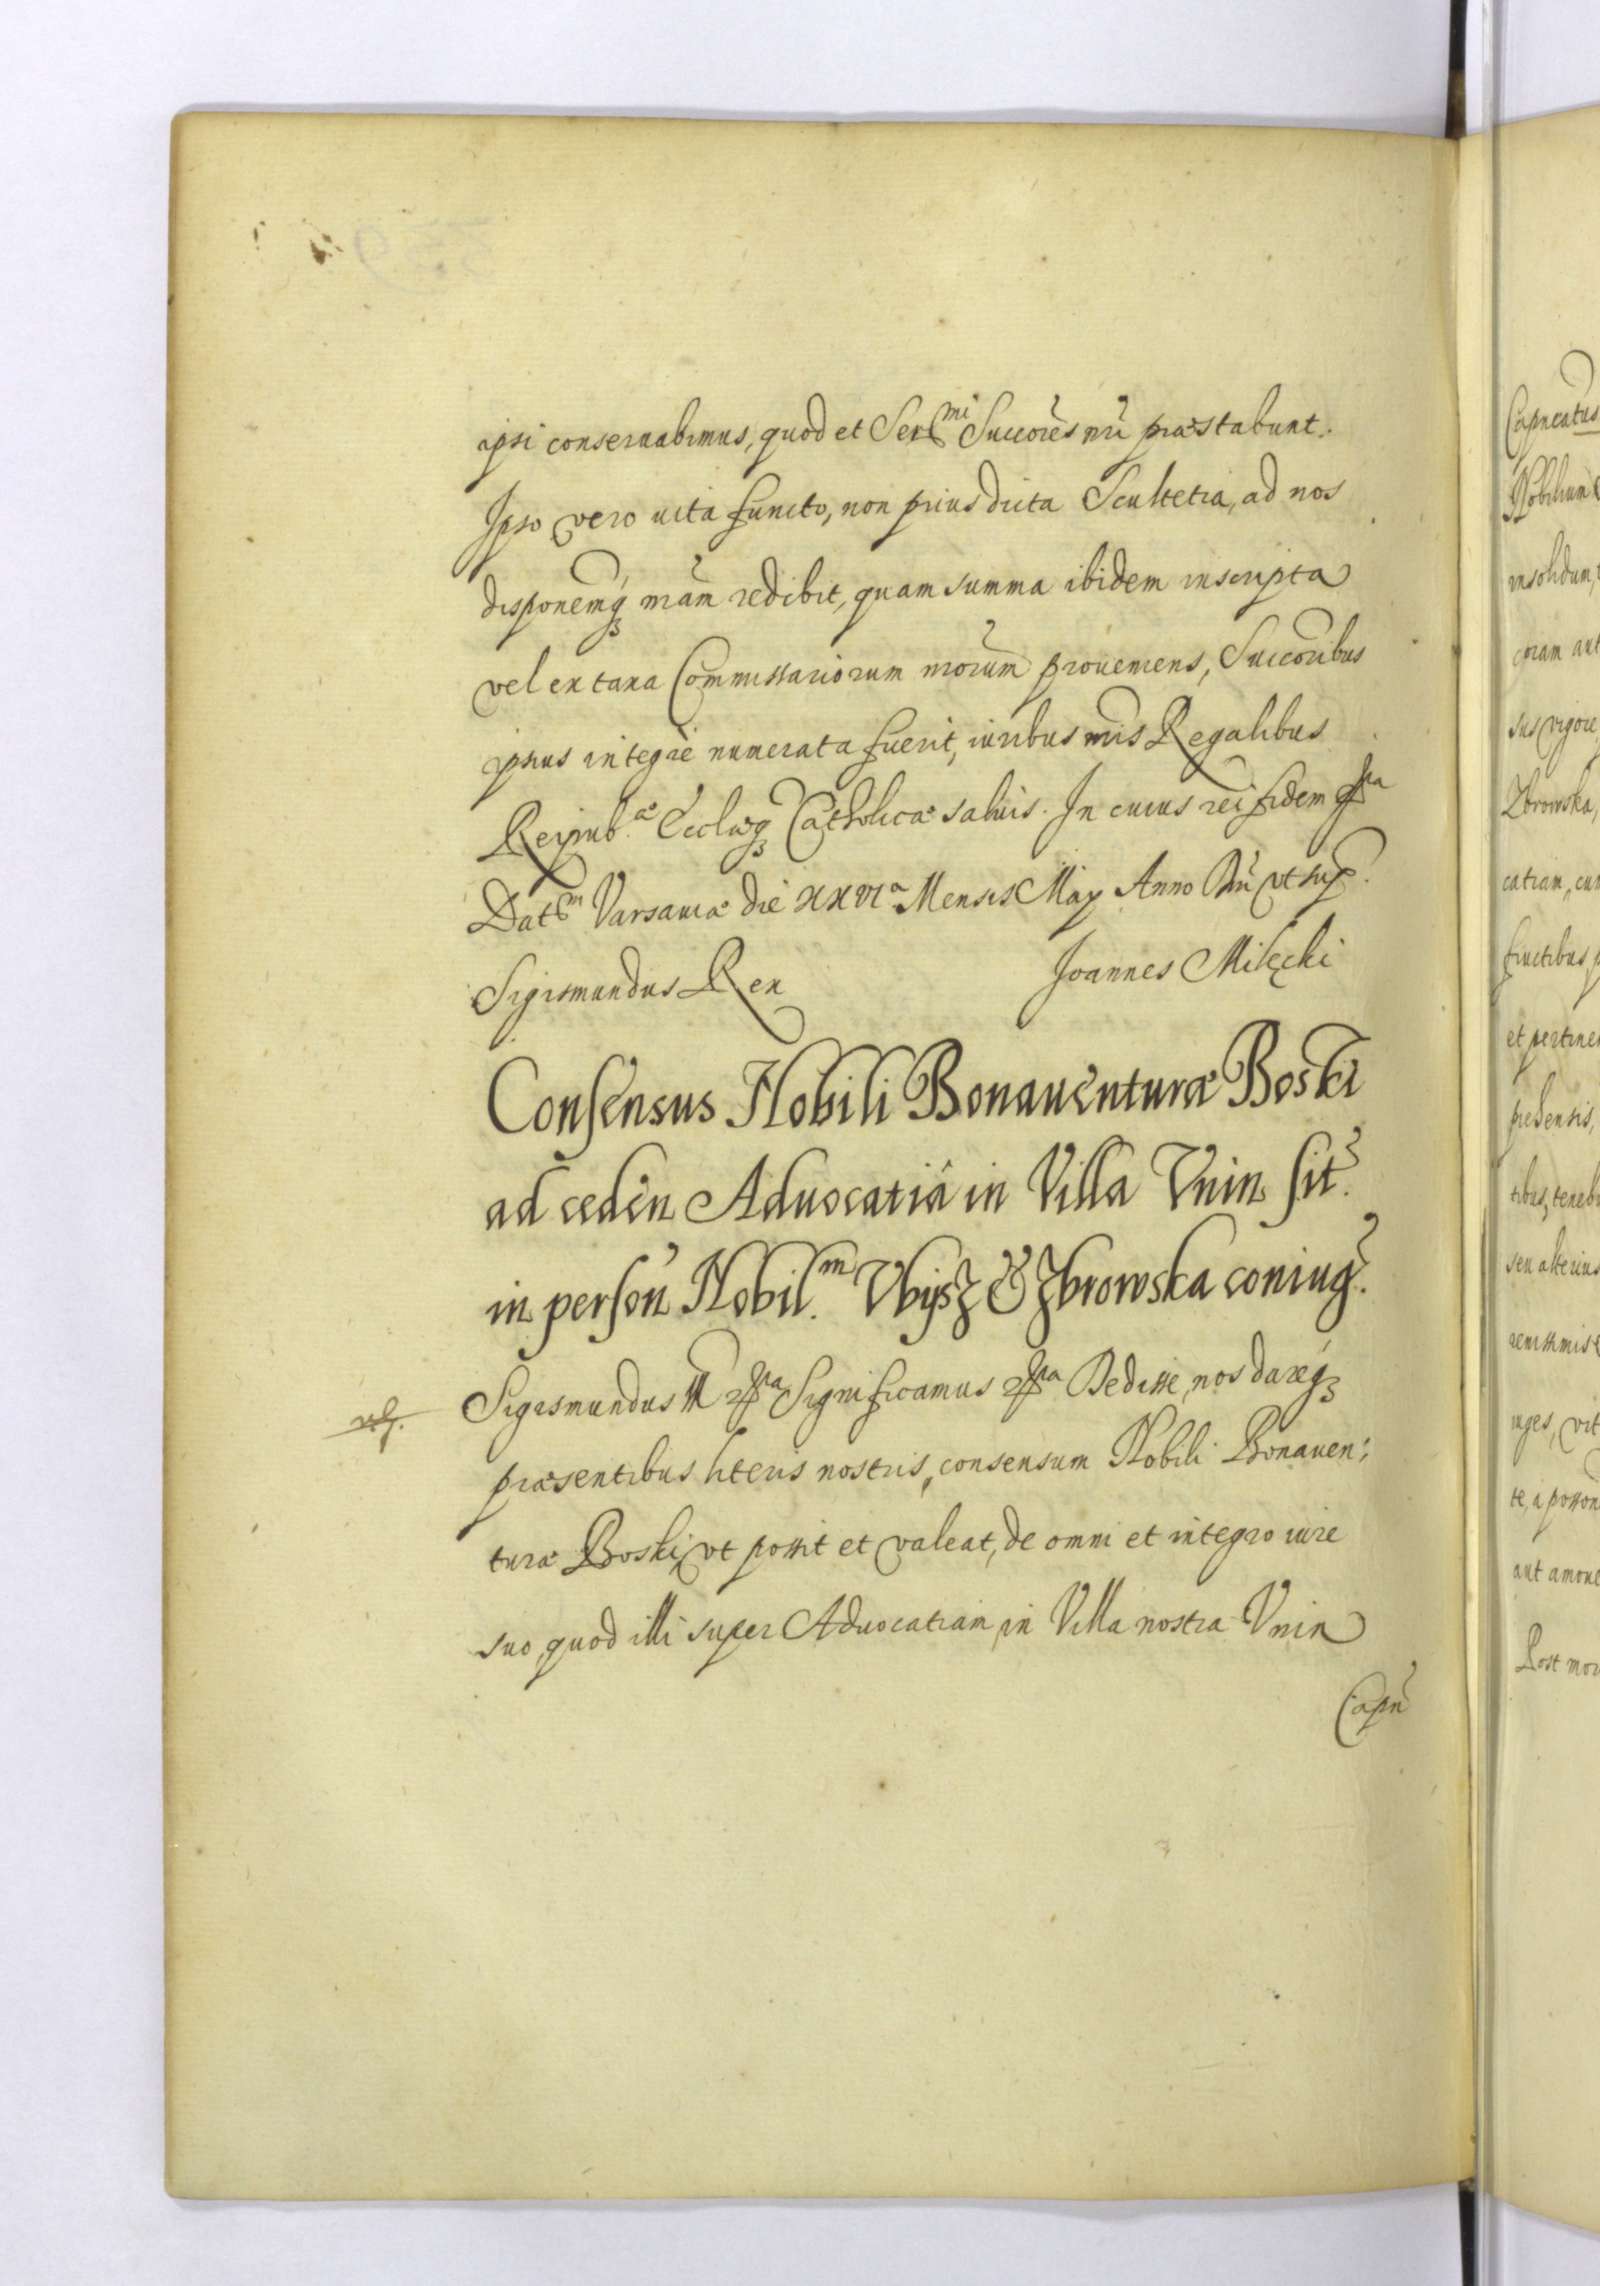 ipsi conseruabimus, quod et Ser<sup>mi</sup> Succores nri præstabunt.
Ipso vero vita functo, non prius dicta Scultetia, ad nos
disponemq₃ nram redibit, quam summa ibidem inscripta
vel ex taxa Commissariorum nrorum proueniens, Succoribus
ipsius integrè numerata fuerit, iuribus nris Regalibus
Reipub.<sup>æ</sup> Ecclæq₃ Catholicæ saluis. In cuius rei fidem
Dat<sup>m</sup> Varsauiæ die XXVI<sup>a</sup> Mensis Maÿ Anno Dni vt sup.
Sigismundus Rex Joannes Milęcki
Consensus Nobili Bonauenturæ Boski
ad ceden Aduocatiā in Villa Vnin sit.
in person Nobil.<sup>m</sup> Vbÿsz & Zbrowska coniug.
Sigismundus III Significamus Dedisse, nos dareq₃
præsentibus literis nostris, consensum Nobili Bonauen:
turæ Boski, vt possit et valeat, de omni et integro iure
suo, quod illi super Aduocatiam, in Villa nostra Vnin
Capn
Capneatus
Nobilium
insolidum,
coram
sus vigore
Zbrowska,
catiam, cum
fructibus
et pertinen
prehensis,
tibus, tenebu
seu alterius
remissimis
iuges, vit
te, a
aut amoue
Post mor